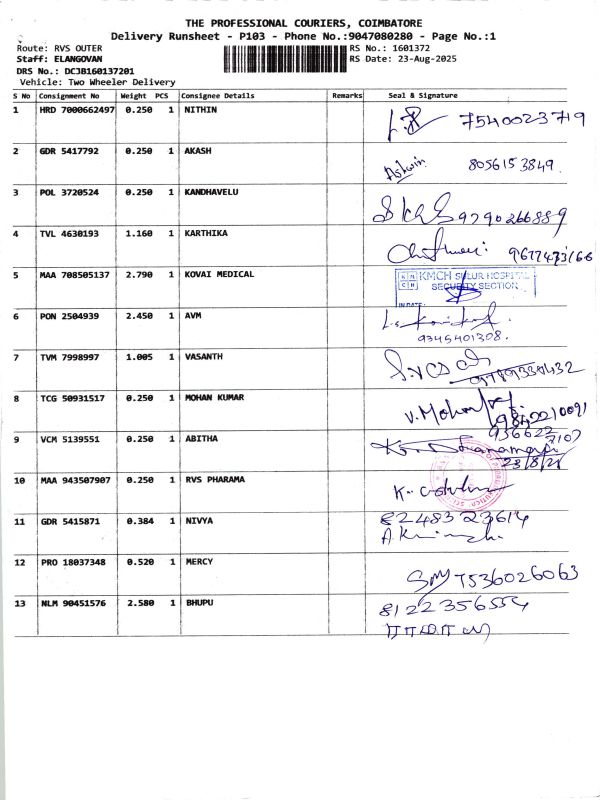 THE PROFESSIONAL COURIERS, COIMBATORE
Delivery Runsheet - P103 - Phone No.:9047080280 - Page No.:1
Route: RVS OUTER RS No.: 1601372
Staff: ELANGOVAN RS Date: 23-Aug-2025
DRS No.: DCJB160137201
Vehicle: Two Wheeler Delivery
S No Consignment No Weight PCS Consignee Details Remarks Seal & Signature
1 HRD 7000662497 0.250 1 NITHIN 7540023719
2 GDR 5417792 0.250 1 AKASH Ashwin 8056153849.
3 POL 3720524 0.250 1 KANDHAVELU 9790266889
4 TVL 4630193 1.160 1 KARTHIKA
5 MAA 708505137 2.790 1 KOVAI MEDICAL KMCH SULUR HOSPITAL
SECURITY SECTION
6 PON 2504939 2.450 1 AVM
9345401308.
7 TVM 7998997 1.005 1 VASANTH
8 TCG 50931517 0.250 1 MOHAN KUMAR V. Mohan
9842210091
9 VCM 5139551 0.250 1 ABITHA
23/8/25
10 MAA 943507907 0.250 1 RVS PHARAMA
11 GDR 5415871 0.384 1 NIVYA 8248323614
12 PRO 18037348 0.520 1 MERCY 7536026063
13 NLM 90451576 2.580 1 BHUPU 8122356554